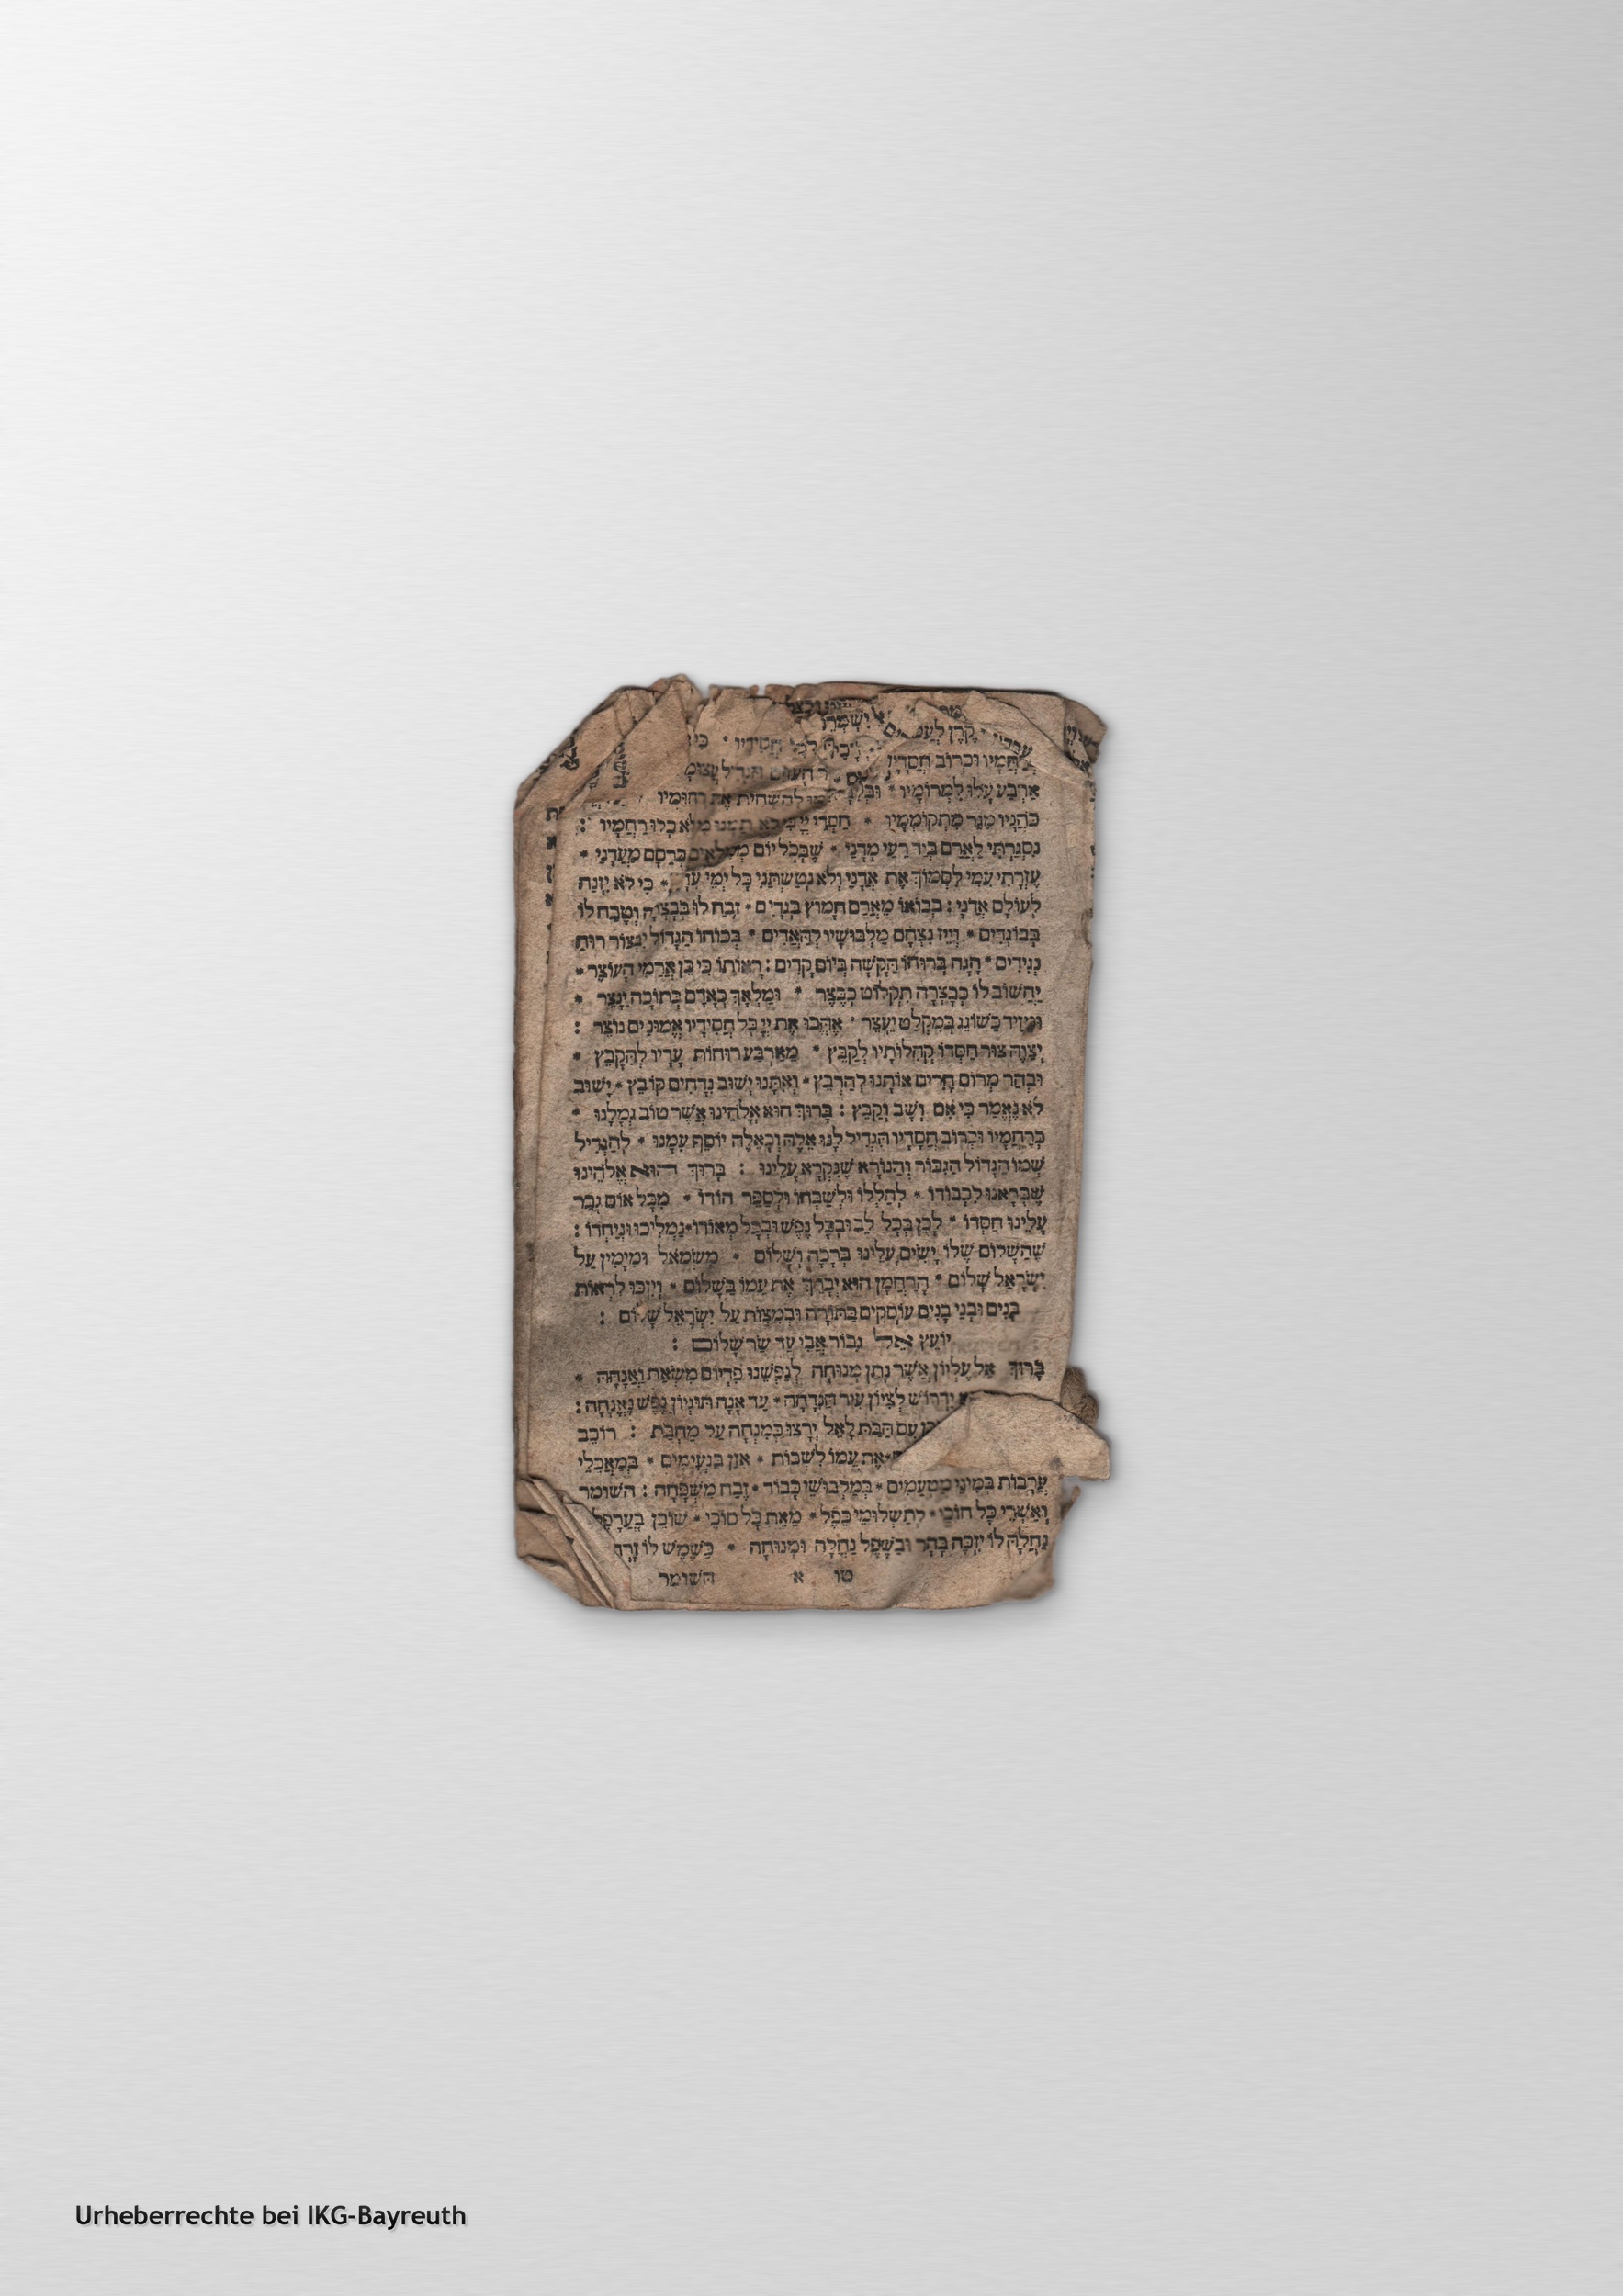 קרן לעמו
וכרוב חסדיו
ארבע עלו למרומיו * להשחית את רחומיו
מתקוממיו * חסדי יי כי לא תמנו כי לא כלו רחמיו :
ביד רעי מדני * שבכל יום
עזרתי עמי לסמוך את אדני ולא נטשתני כל ימי עדני * כי לא יזנח
לעולם אדני : בבואו מארם חמוץ בגדים * זבח לו בבצרה וטבח לו
בבוגדים * ויז נצחם מלבושיו להאדים * בכוחו הגדול יבצור רוח
נגידים * הגה ברוחו הקשה ביום קדים : ראותו כי כן אדמי העוצר *
יחשוב לו כבצרה תקלוט כבצר * ומלאך כאדם בתוכה ינצר *
ומזיד כשוגג במקלט יעצר * אהבו את יי כל חסידיו אמונים נוצר :
יצוה צור חסדו קהלותיו לקבץ * מארבע רוחות עדיו להקבץ *
ובהר מרום הרים אותנו להרבץ * ואתנו ישוב נדחים קובץ * ישוב
לא נאמר כי אם ושב וקבץ : ברוך הוא אלהינו אשר טוב גמלנו *
כרחמיו וכרוב חסדיו הגדיל לנו אלה וכאלה יוסף עמנו * להגדיל
שמו הגדול הגבור והנורא שנקרא עלינו : ברוך הוא אלהינו
שבראנו לכבודו * להללו ולשבחו ולספר הודו * מכל אום גבר
עלינו חסדו * לכן בכל לב ובכל נפש ובכל מאודו * נמליכו וניחדו :
שהשלום שלו ישים עלינו ברכה ושלום * משמאל ומימין על
ישראל שלום * הרחמן הוא יברך את עמו בשלום * ויזכו לראות
בנים ובני בנים עוסקים בתורה ובמצות על ישראל שלום :
יועץ אל גבור אבי עד שר שלום :
ברוך אל עליון אשר נתן מנוחה לנפשנו פדיום משאת ואנחה *
ידרוש לציון עיר הנדחה * עד אנה תוגיון נפש נאנחה :
עם הבת לאל ירצו כמנחה על מחבת : רוכב
את עמו לשבות * אזן בנעימים * במאכלי
ערבות במיני מטעמים * במלבושי כבוד * זבח משפחה : השומר
ואשרי כל חוכי * לתשלומי כפל * מאת כל סוכי * שוכן בערפל
נחלה לו יזכה בהר ובשפל נחלה ומנוחה * כשמש לו זרח
טו א השומר
Urheberrechte bei IKG-Bayreuth